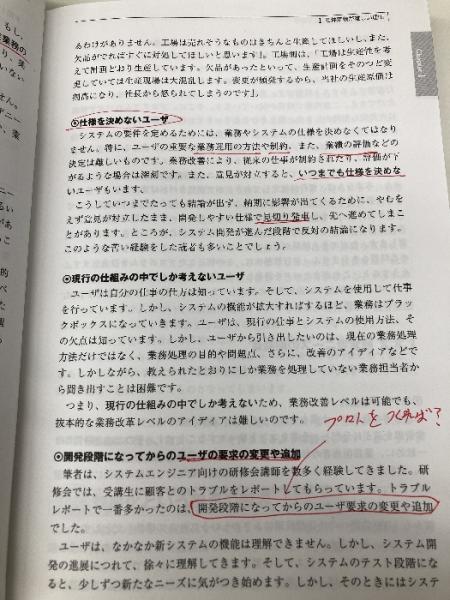 るわけがありません。工場は売れそうなものはきちんと生産してほしいし、また、
欠品がでればすぐに対処してほしいと思います」。工場側は、「工場は生産性を考
えて計画どおり生産しています。欠品があったといって、生産計画をそのつど変
更していては生産現場は大混乱します。変更が頻発するから、当社の生産原価は
割高になり、社長から怒られてしまうのです」。
◎仕様を決めないユーザ
システムの要件を定めるためには、業務やシステムの仕様を決めなくてはなり
ません。特に、ユーザの重要な業務運用の方法や制約、また、業績の評価などの
決定は難しいものです。業務改善により、従来の仕事が制約されたり、評価が下
がるような場合は深刻です。また、意見が対立すると、いつまでも仕様を決めな
いユーザもいます。
こうしていつまでたっても結論が出ず、納期に影響が出てくるために、やむを
えず意見が対立したまま、開発しやすい仕様で見切り発車し、先へ進めてしまこ
とがあります。ところが、システム開発が進んだ段階で反対の結論になります。
このような苦い経験をした読者も多いことでしょう。
◎現行の仕組みの中でしか考えないユーザ
ユーザは自分の仕事の仕方は知っています。そして、システムを使用して仕事
を行っています。しかし、システムの機能が拡大すればするほど、業務はブラッ
クボックスになっていきます。ユーザは、現行の仕事とシステムの使用方法、そ
の欠点は知っています。しかし、ユーザから引き出したいのは、現在の業務処理
方法だけではなく、業務処理の目的や問題点、さらに、改善のアイディアなどで
す。しかしながら、教えられたとおりにしか業務を処理していない業務担当者か
ら聞き出すことは困難です。
つまり、現行の仕組みの中でしか考えないため、業務改善レベルは可能でも、
抜本的な業務改革レベルのアイディアは難しいのです。
プロトをつくれば?
◎開発段階になってからのユーザの要求の変更や追加
筆者は、システムエンジニア向けの研修会講師を数多く経験してきました。研
修会では、受講生に顧客とのトラブルをレポートしてもらっています。トラブル
レポートで一番多かったのは、開発段階になってからのユーザ要求の変更や追加
でした。
ユーザは、なかなか新システムの機能は理解できません。しかし、システム開
発の進展につれて、徐々に理解してきます。そして、システムのテスト段階にな
ると、少しずつ新たなニーズに気がつき始めます。しかし、そのときにはシステ